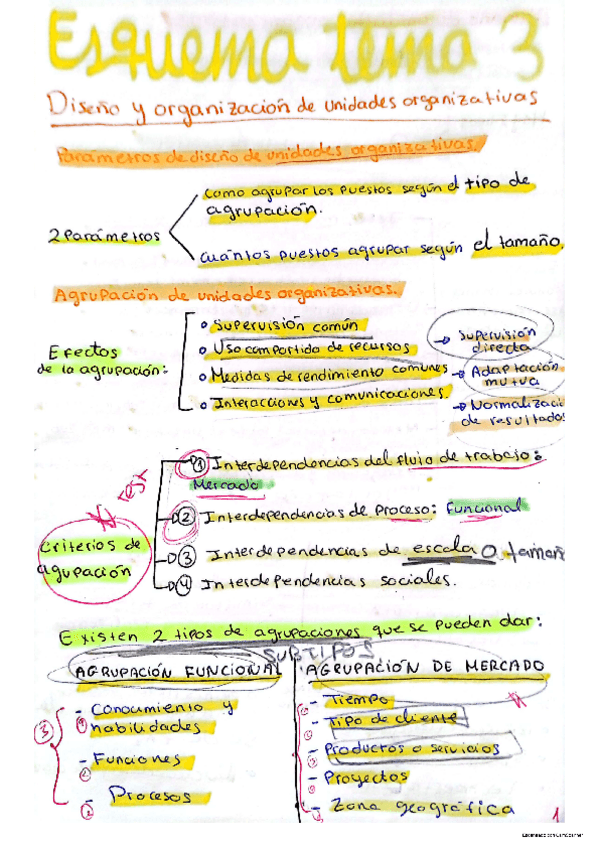 Esquema tema 3
Diseño y organización de unidades organizativas
Parámetros de diseño de unidades organizativas.
2 Parámetros
Como agrupar los puestos según el tipo de
agrupación.
Cuántos puestos agrupar según el tamaño.
Agrupación de unidades organizativas.
Efectos
de la agrupación:
Supervisión común
Uso compartido de recursos
Medidas de rendimiento comunes
Interacciones y comunicaciones.
Supervisión
directa
Adaptación
mutua
Normalizaci
de resultados
test
Criterios de
agupación
1 Interdependencias del flujo de trabajo:
Mercado
2 Interdependencias de Proceso: Funcional
3 Interdependencias de escala o tamañ
4 Interdependencias sociales.
Existen 2 tipos de agrupaciones que se pueden dar:
SUBTIPOS
AGRUPACIÓN FUNCIONAL
3
- Conocimiento y
habilidades
- Funciones
- Procesos
AGRUPACIÓN DE MERCADO
- Tiempo
- Tipo de cliente
- Productos o servicios
- Proyectos
- Zona geográfica
1